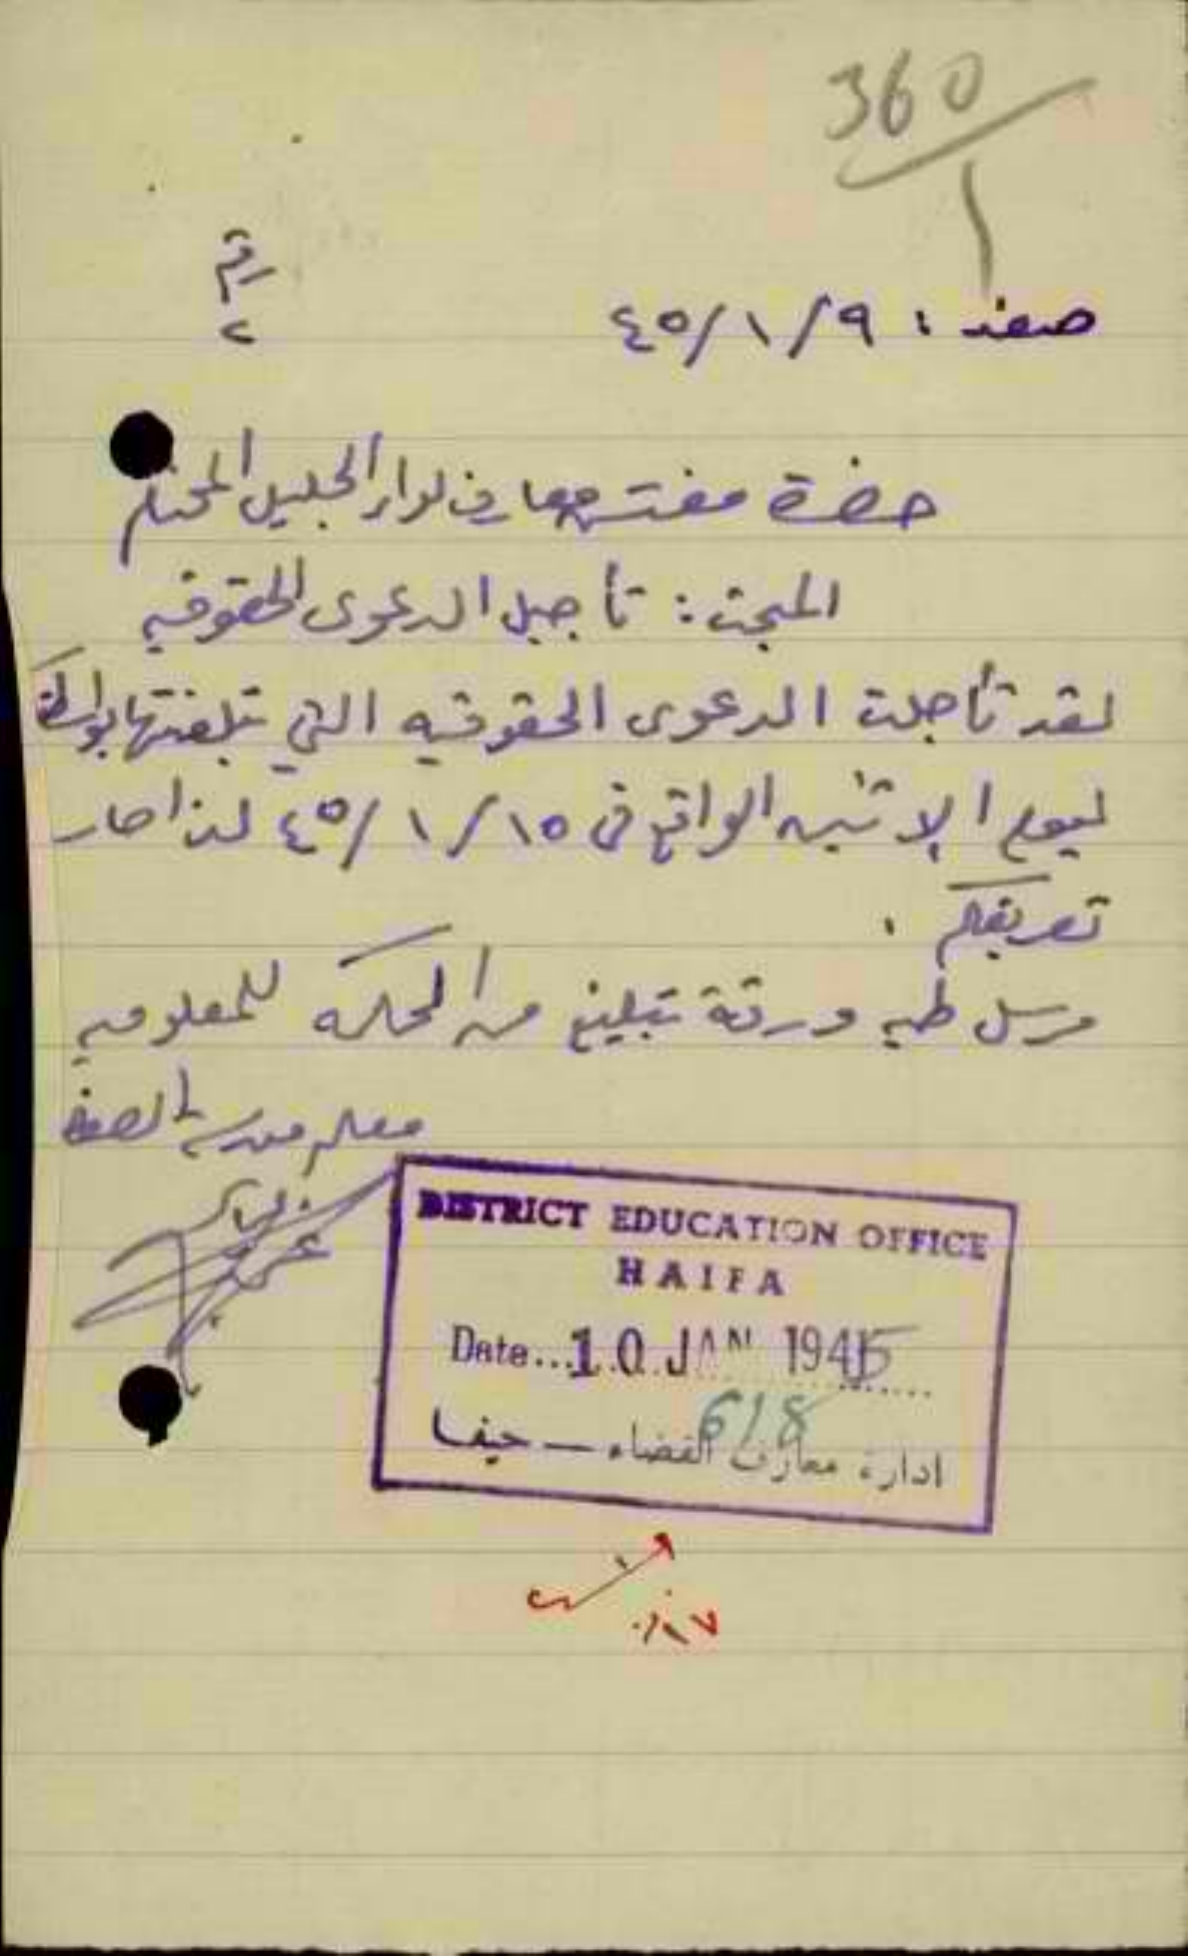 360
1
رقم
٢
صفد : ٤٥/١/٩
حضرة مفتش معارف لواء الجليل المحترم
المبحث : تأجيل الدعوى الحقوقيه
لقد تأجلت الدعوى الحقوقيه التي تبلغتها بواسطة
ليوم الاثنين الواقع في ٤٥/١/١٥ لذا صار
تعريفكم .
مرسل طيه ورقة تبليغ من المحكمه للمعلوميه
معلم مدرسة
DISTRICT EDUCATION OFFICE
HAIFA
Date...10 JAN 1945
618
ادارة معارف القضاء – حيفا